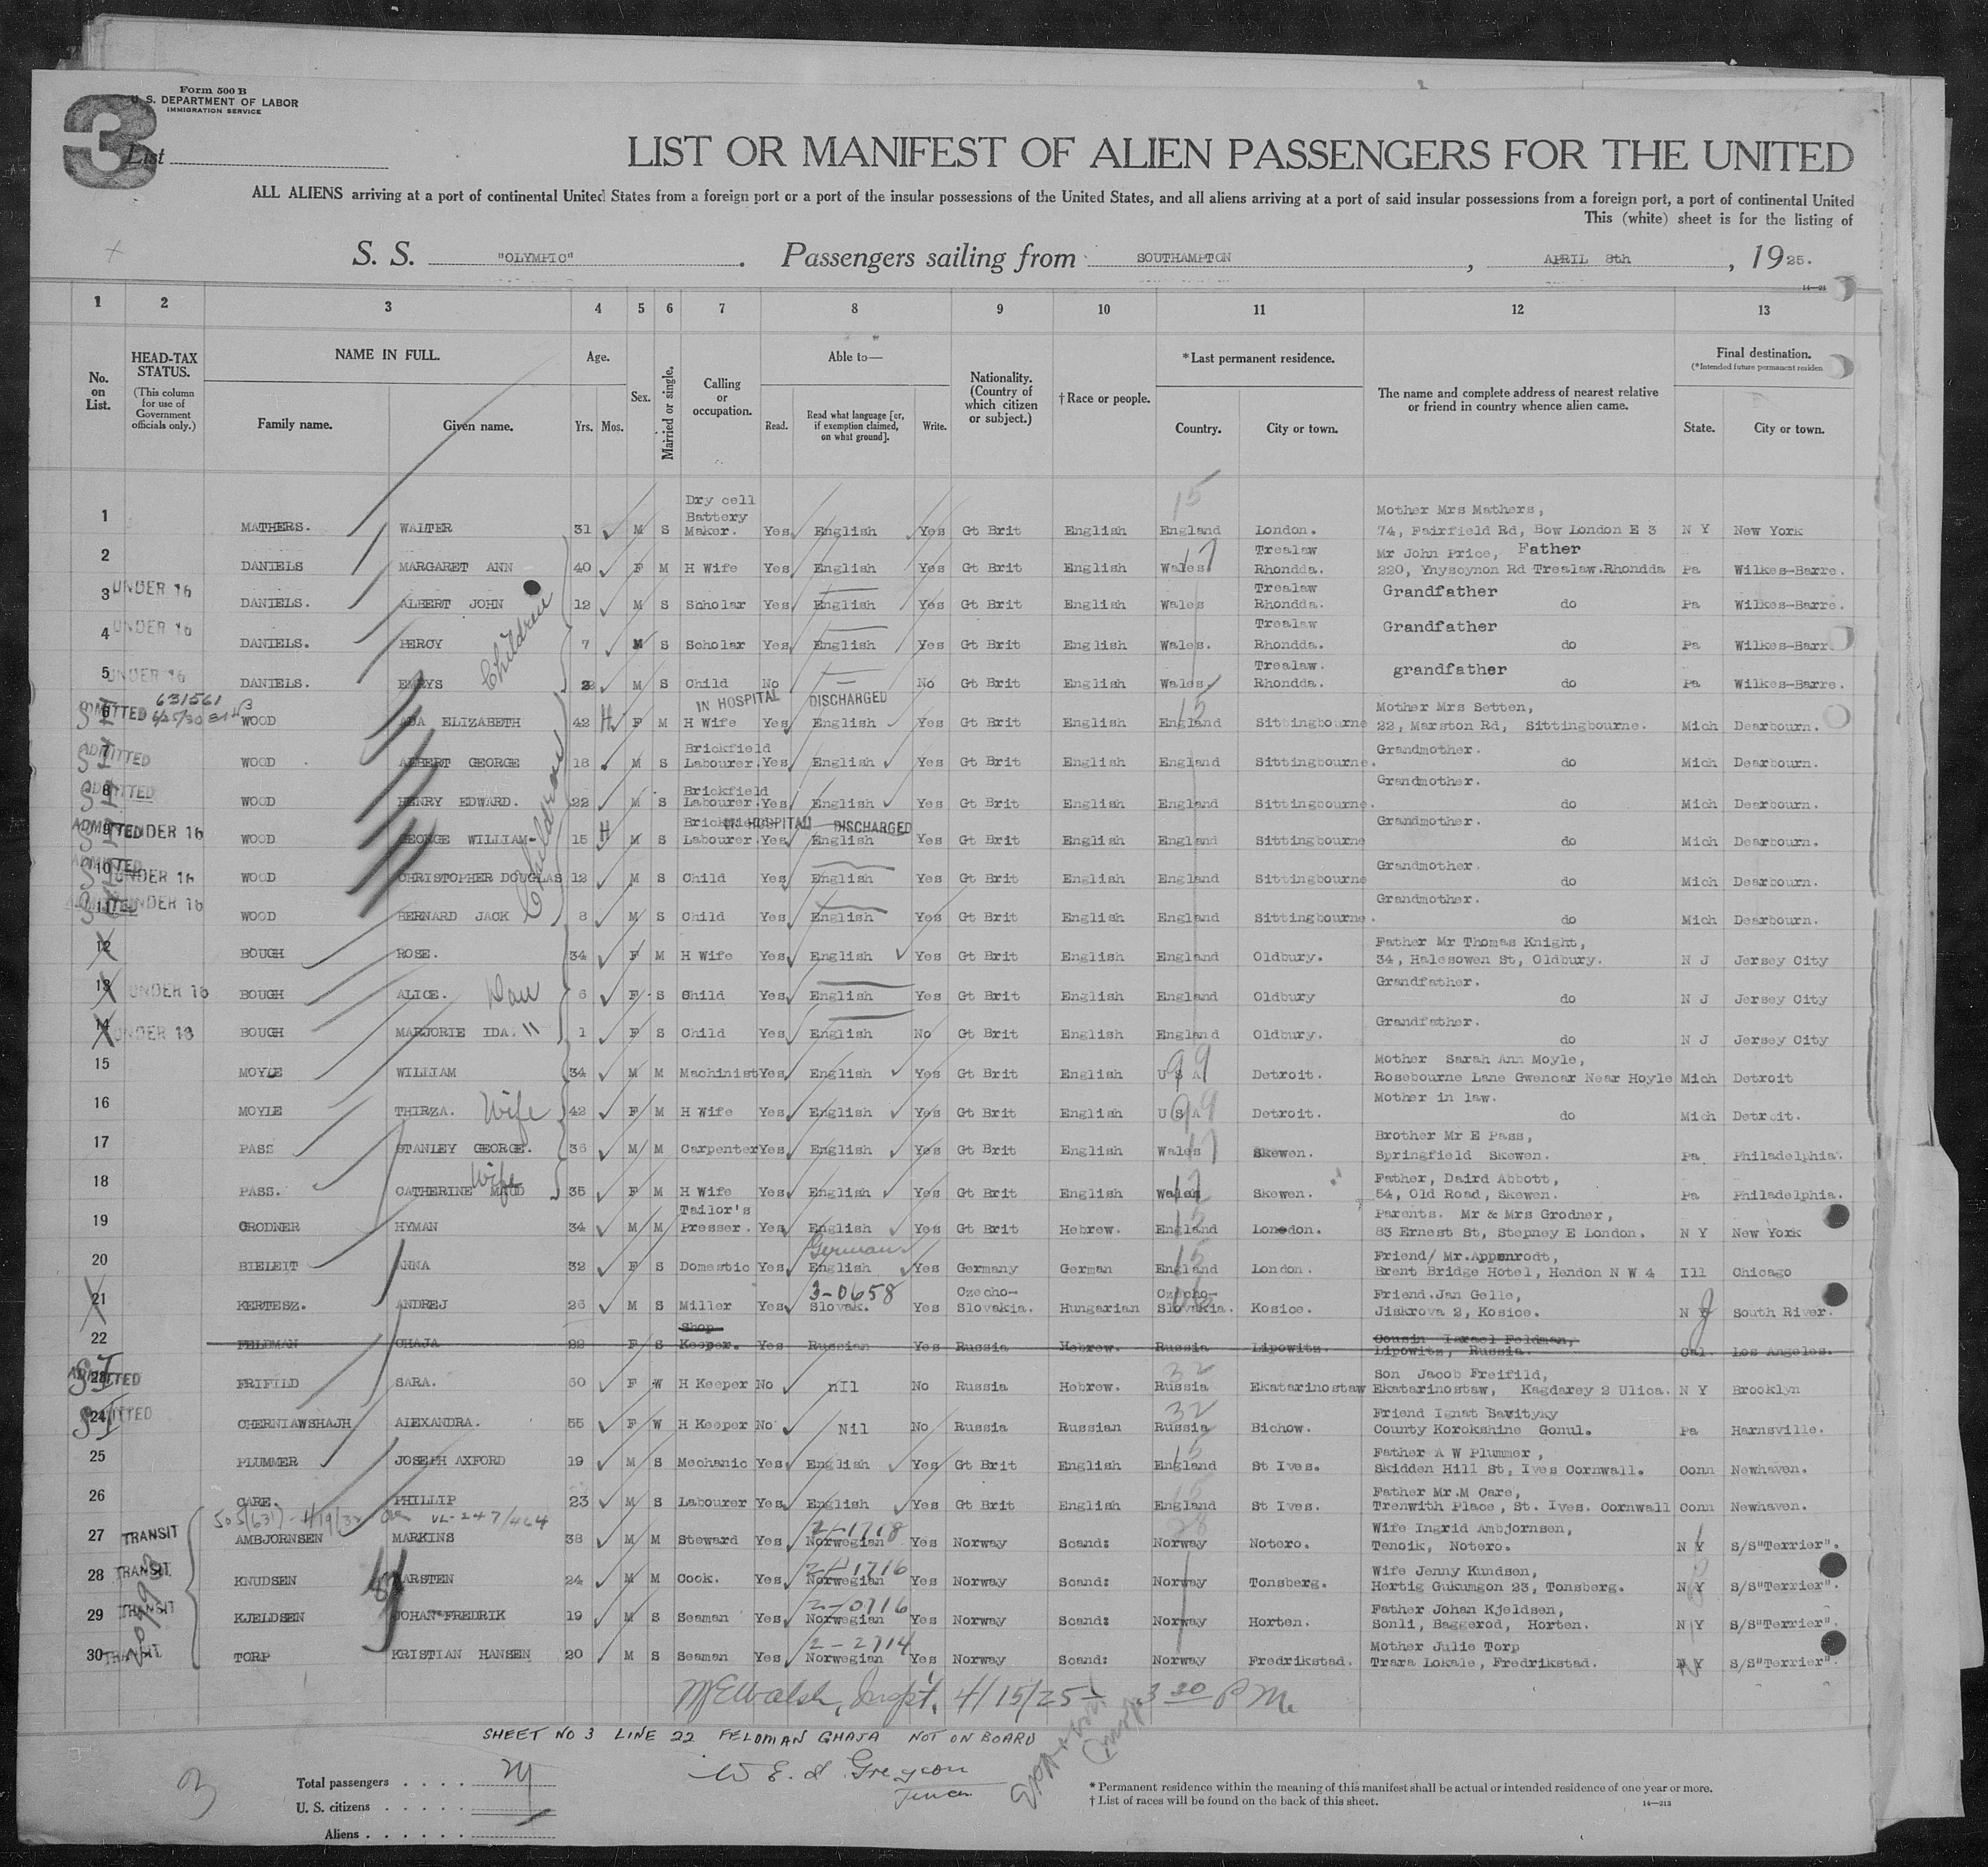 Form 500 B
U. S. DEPARTMENT OF LABOR
IMMIGRATION SERVICE
3
List
LIST OR MANIFEST OF ALIEN PASSENGERS FOR THE UNITED
ALL ALIENS arriving at a port of continental United States from a foreign port or a port of the insular possessions of the United States, and all aliens arriving at a port of said insular possessions from a foreign port, a port of continental United
This (white) sheet is for the listing of
S. S. "OLYMPIC". Passengers sailing from SOUTHAMPTON, APRIL 8th, 1925.
14—21
1 2 3 4 5 6 7 8 9 10 11 12 13
No. on List. HEAD-TAX STATUS. (This column for use of Government officials only.) NAME IN FULL. Family name. Given name. Age. Yrs. Mos. Sex. Married or single. Calling or occupation. Able to— Read. Read what language [or, if exemption claimed, on what ground]. Write. Nationality. (Country of which citizen or subject.) †Race or people. *Last permanent residence. Country. City or town. The name and complete address of nearest relative or friend in country whence alien came. Final destination. (*Intended future permanent residen State. City or town.
1 MATHERS. WALTER 31 M S Dry cell Battery Maker. Yes English Yes Gt Brit English England 15 London. Mother Mrs Mathers, 74, Fairfield Rd, Bow London E 3 N Y New York
2 DANIELS MARGARET ANN 40 F M H Wife Yes English Yes Gt Brit English Wales 17 Trealaw Rhondda. Mr John Price, Father 220, Ynyscynon Rd Trealaw.Rhondda Pa Wilkes-Barre.
3 UNDER 16 DANIELS. ALBERT JOHN 12 M S Scholar Yes English Yes Gt Brit English Wales Trealaw Rhondda. Grandfather do Pa Wilkes-Barre.
4 UNDER 16 DANIELS. PERCY Children 7 M S Scholar Yes English Yes Gt Brit English Wales. Trealaw Rhondda. Grandfather do Pa Wilkes-Barr
5 UNDER 16 DANIELS. EMRYS 2 M S Child No — No Gt Brit English Wales Trealaw. Rhondda. grandfather do Pa Wilkes-Barre.
6 SI ADMITTED 631561 6/25/30 WOOD ADA ELIZABETH 42 H F M H Wife IN HOSPITAL DISCHARGED Yes English Yes Gt Brit English England 15 Sittingbourne Mother Mrs Setten, 22, Marston Rd, Sittingbourne. Mich Dearbourn.
7 SI ADMITTED WOOD ALBERT GEORGE 18 M S Brickfield Labourer. Yes English Yes Gt Brit English England Sittingbourne. Grandmother. do Mich Dearbourn.
8 SI ADMITTED WOOD HENRY EDWARD. 22 M S Brickfield Labourer. Yes English Yes Gt Brit English England Sittingbourne. Grandmother. do Mich Dearbourn.
9 SI ADMITTED UNDER 16 WOOD GEORGE WILLIAM Children 15 H M S Brickfield Labourer. IN HOSPITAL DISCHARGED Yes English Yes Gt Brit English England Sittingbourne Grandmother. do Mich Dearbourn.
10 SI ADMITTED UNDER 16 WOOD CHRISTOPHER DOUGLAS 12 M S Child Yes English Yes Gt Brit English England Sittingbourne Grandmother. do Mich Dearbourn.
11 SI ADMITTED UNDER 16 WOOD BERNARD JACK 8 M S Child Yes English Yes Gt Brit English England Sittingbourne. Grandmother. do Mich Dearbourn.
12 BOUGH ROSE. 34 F M H Wife Yes English Yes Gt Brit English England Oldbury. Father Mr Thomas Knight, 34, Halesowen St, Oldbury. N J Jersey City
13 UNDER 16 BOUGH ALICE. Dau 6 F S Child Yes English Yes Gt Brit English England Oldbury Grandfather. do N J Jersey City
14 UNDER 16 BOUGH MARJORIE IDA. " 1 F S Child Yes English No Gt Brit English England Oldbury. Grandfather. do N J Jersey City
15 MOYLE WILLIAM 34 M M Machinist Yes English Yes Gt Brit English U S A 99 Detroit. Mother Sarah Ann Moyle, Rosebourne Lane Gwencar Near Hoyle Mich Detroit
16 MOYLE THIRZA. Wife 42 F M H Wife Yes English Yes Gt Brit English U S A 99 Detroit. Mother in law. do Mich Detroit.
17 PASS STANLEY GEORGE. 36 M M Carpenter Yes English Yes Gt Brit English Wales 17 Skewen. Brother Mr E Pass, Springfield Skewen. Pa Philadelphia.
18 PASS. CATHERINE MAUD Wife 35 F M H Wife Yes English Yes Gt Brit English Wales 17 Skewen. Father, Daird Abbott, 54, Old Road, Skewen. Pa Philadelphia.
19 GRODNER HYMAN 34 M M Tailor's Presser. Yes English Yes Gt Brit Hebrew. England 15 London. Parents. Mr & Mrs Grodner, 83 Ernest St, Stepney E London. N Y New York
20 BIELEIT ANNA 32 F S Domestic Yes German English Yes Germany German England 15 London. Friend/ Mr.Appenrodt, Brent Bridge Hotel, Hendon N W 4 Ill Chicago
21 KERTESZ. ANDREJ 26 M S Miller Yes 3-0658 Slovak. Yes Czecho-Slovakia. Hungarian Czecho-Slovakia. Kosice. Friend.Jan Gelle, Jiskrova 2, Kosice. N J South River.
22 FELDMAN CHAJA 22 F S Shop Keeper. Yes Russian Yes Russia Hebrew. Russia Lipowitz. Cousin Israel Feldman, Lipowitz, Russia. Cal. Los Angeles.
23 SI ADMITTED FRIFILD SARA. 60 F W H Keeper No nIl No Russia Hebrew. Russia 32 Ekatarinostaw Son Jacob Freifild, Ekatarinostaw, Kagdarey 2 Ulica. N Y Brooklyn
24 SI ADMITTED CHERNIAWSHAJH ALEXANDRA. 55 F W H Keeper No Nil No Russia Russian Russia 32 Bichow. Friend Ignat Savityky County Korokshine Gonul. Pa Harnsville.
25 PLUMMER JOSEPH AXFORD 19 M S Mechanic Yes English Yes Gt Brit English England 15 St Ives. Father A W Plummer, Skidden Hill St, Ives Cornwall. Conn Newhaven.
26 CARE. PHILLIP 23 M S Labourer Yes English Yes Gt Brit English England 15 St Ives. Father Mr.M Care, Trenwith Place, St. Ives. Cornwall Conn Newhaven.
27 TRANSIT AMBJORNSEN MARKINS 38 M M Steward Yes 2-1718 Norwegian Yes Norway Scand: Norway 28 Notero. Wife Ingrid Ambjornsen, Tenoik, Notero. N Y S/S"Terrier".
28 TRANSIT KNUDSEN KARSTEN 24 M M Cook. Yes 2-1716 Norwegian Yes Norway Scand: Norway Tonsberg. Wife Jenny Kundsen, Hertig Gukumgon 23, Tonsberg. N Y S/S"Terrier".
29 TRANSIT KJELDSEN JOHAN FREDRIK 19 M S Seaman Yes 2-0716 Norwegian Yes Norway Scand: Norway Horten. Father Johan Kjeldsen, Sonli, Baggerod, Horten. N Y S/S"Terrier".
30 TRANSIT TORP KRISTIAN HANSEN 20 M S Seaman Yes 2-2714 Norwegian Yes Norway Scand: Norway Fredrikstad. Mother Julie Torp Trara Lokale, Fredrikstad. N Y S/S"Terrier".
M E Walsh, Inspt. 4/15/25 3 30 P M.
SHEET NO 3 LINE 22 FELDMAN CHAJA NOT ON BOARD
3
Total passengers . . . .
U. S. citizens . . . . .
Aliens . . . . . .
* Permanent residence within the meaning of this manifest shall be actual or intended residence of one year or more.
† List of races will be found on the back of this sheet.
14—213